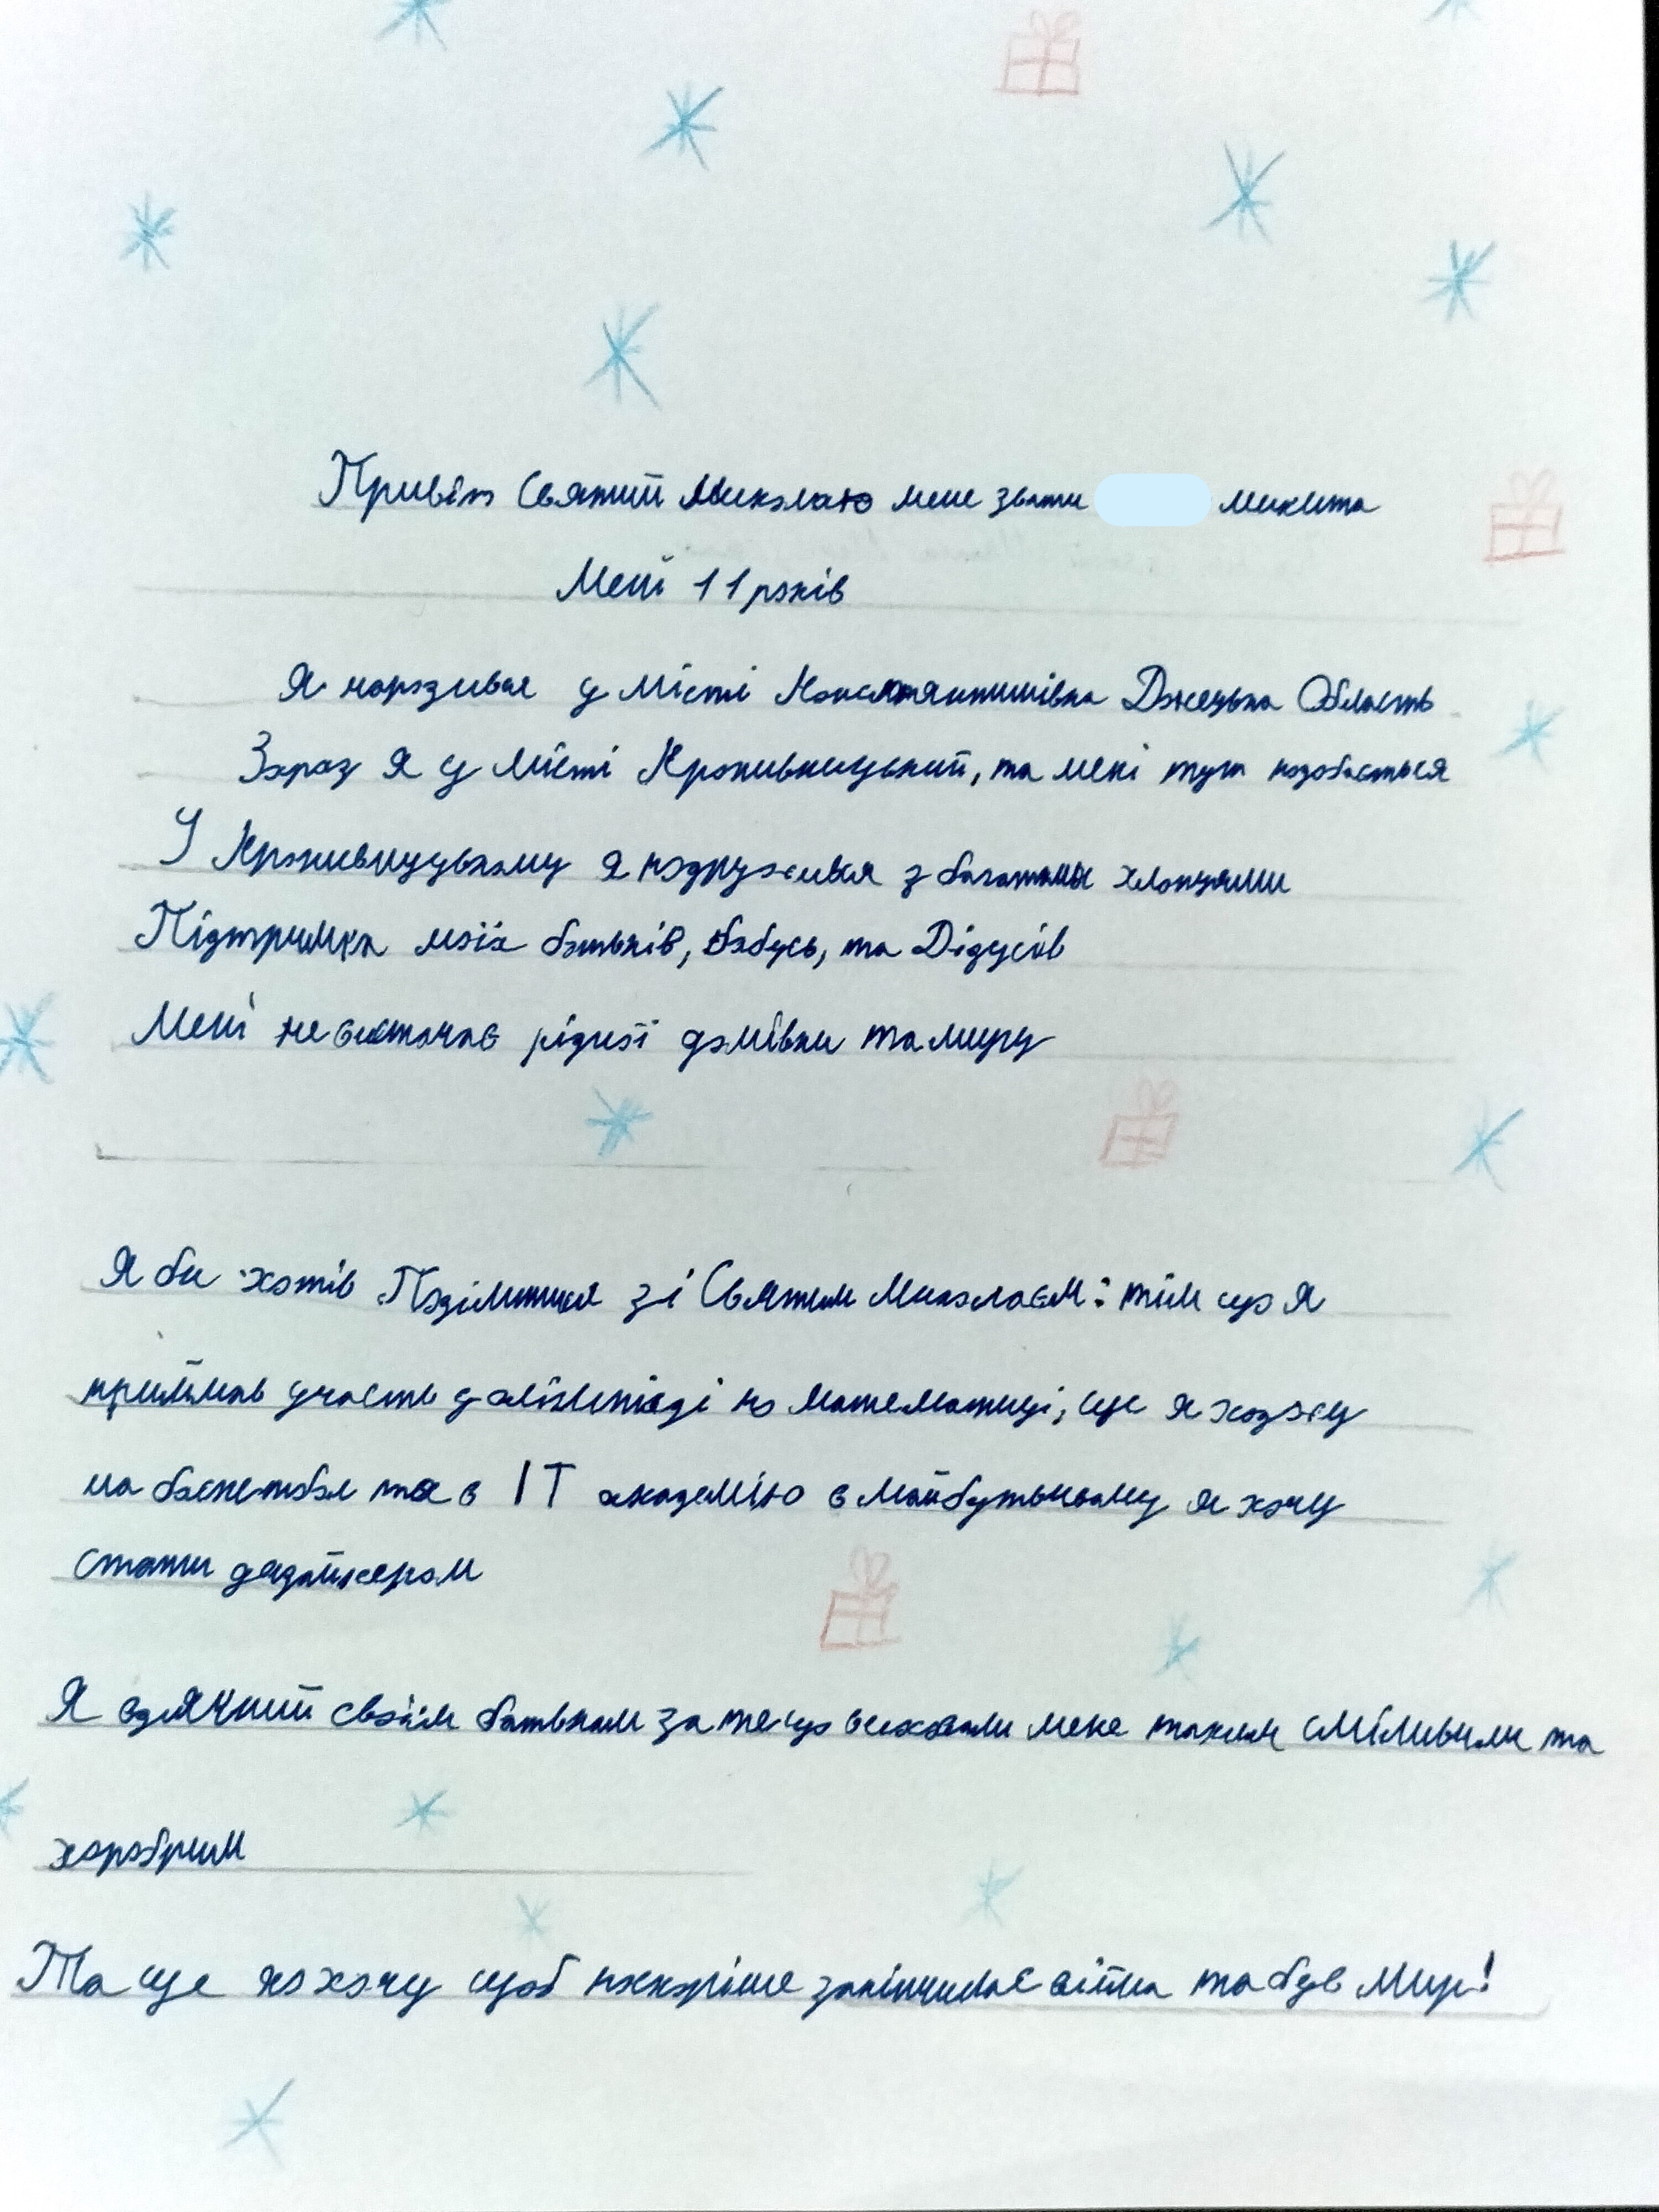 Привіт Святий Миколаю мене звати микита
Мені 11 років
Я народився у місті Константинівка Донецька Область
Зараз я у місті Кропивницький, та мені тут подобається
У Кропивницькому я подружився з багатьма хлопцями
Підтримка моїх батьків, бабусь, та Дідусів
Мені не вистачає рідної домівки та миру
Я би хотів Поділитися зі Святим Миколаєм: тим що я
приймав участь у олімпіаді по математиці, ще я ходжу
на баскетбол та в ІТ академію в майбутньому я хочу
стати дизайнером
Я вдячний своїм батькам за те що виховали меня таким сміливим та
хоробрим
Та ще я хочу щоб поскоріше закінчилас війна та був Мир!